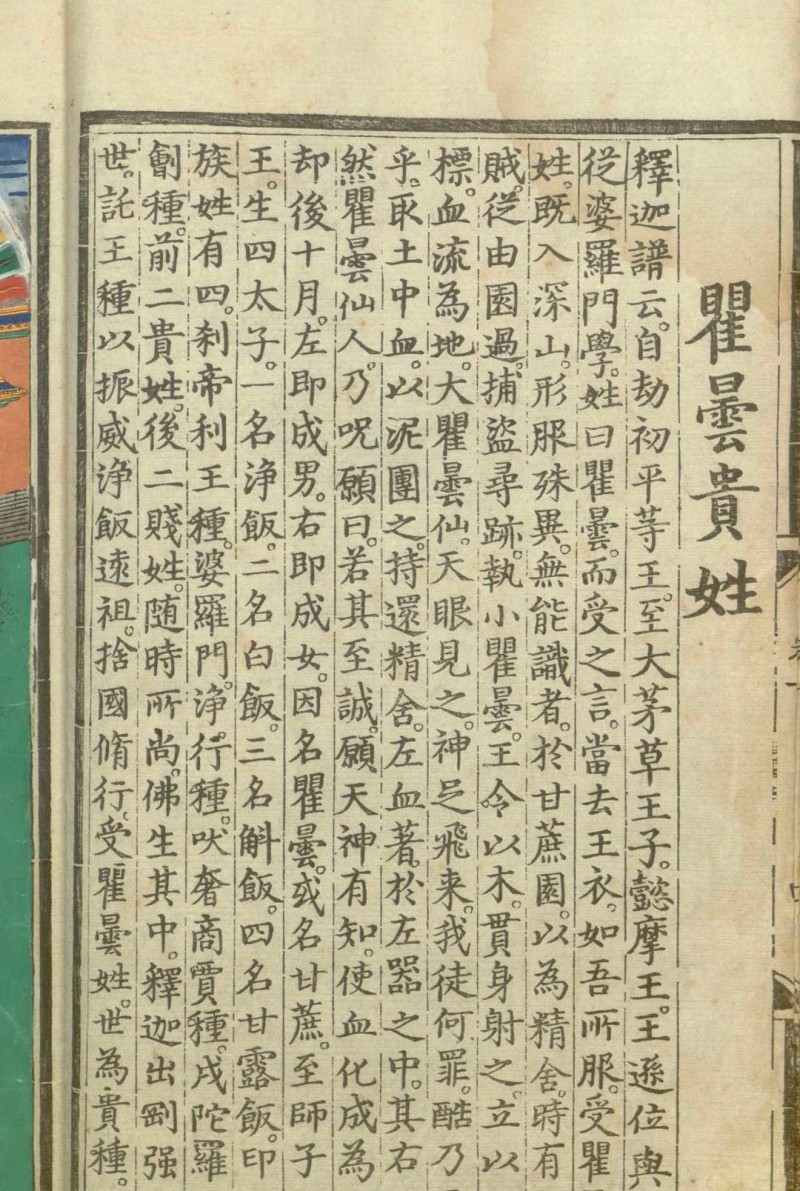 瞿曇貴姓
釋迦譜云。自劫初平等王。至大茅草王子。懿摩王。王遜位與
從婆羅門學。姓曰瞿曇。而受之言。當去王衣。如吾所服。受瞿
姓。既入深山。形服殊異。無能識者。於甘蔗園。以為精舍。時有
賊。從由園過。捕盜尋跡。執小瞿曇。王令以木。貫身射之。立以
標。血流為地。大瞿曇仙。天眼見之。神足飛来。我徒何罪。酷乃
乎。取土中血。以泥團之。持還精舍。左血著。於左器之中。其右
然瞿曇仙人。乃呪願曰。若其至誠。願天神有知。使血化成為
却後十月。左即成男。右即成女。因名瞿曇。或名甘蔗。至師子
王。生四太子。一名浄飯。二名白飯。三名斛飯。四名甘露飯。印
族姓有四。刹帝利王種。婆羅門。浄行種。吠奢商賈種。戍陀羅
劊種。前二貴姓。後二賤姓。随時所尚。佛生其中。釋迦出剛强
世。託王種以振威浄飯遠祖。捨國脩行。受瞿曇姓。世為貴種。